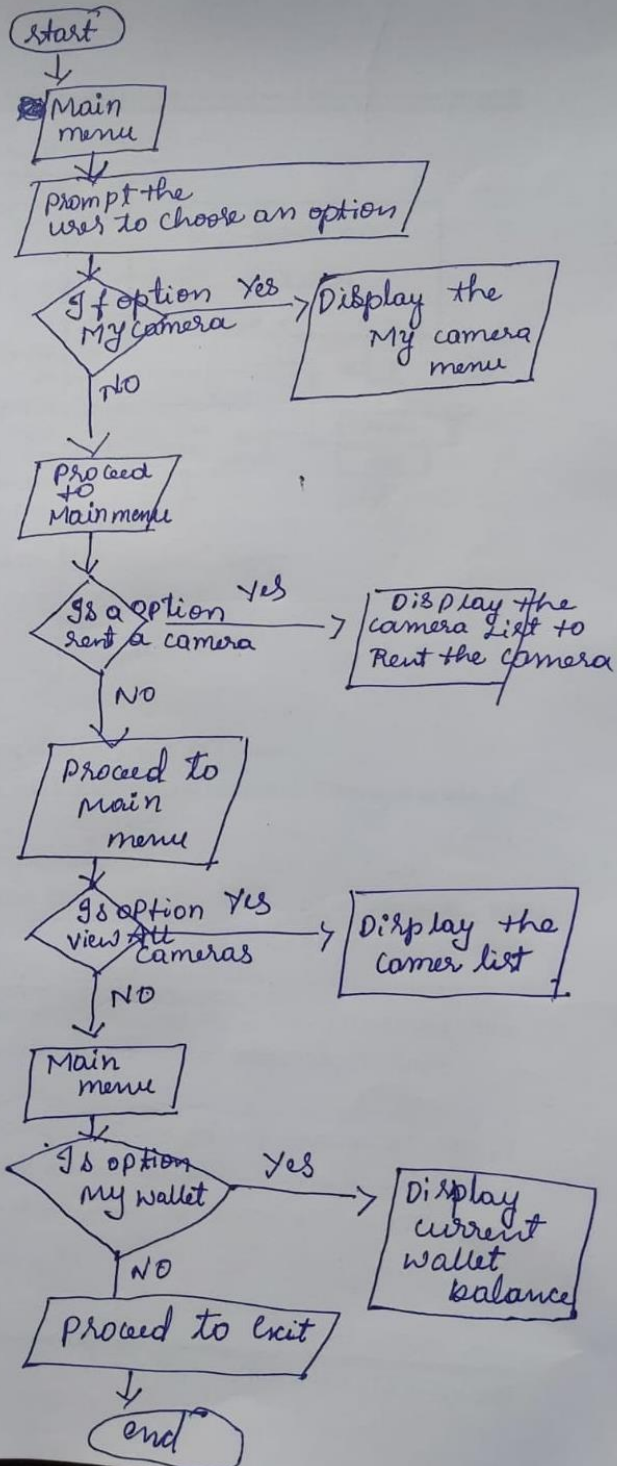 start
Main
menu
Prompt the
user to choose an option
If option Yes
My camera
Display the
My camera
menu
NO
Proceed
to
Main menu
Is a option Yes
rent a camera
Display the
camera List to
Rent the camera
NO
Proceed to
Main
menu
Is option Yes
view All
cameras
Display the
camer list
NO
Main
menu
Is option Yes
My wallet
Display
current
wallet
balance
NO
Proceed to Exit
end